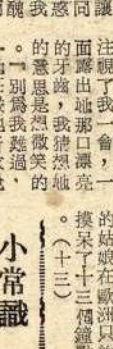 注視了我一會，一
面露出她那口漂亮
的牙齒，我猜想她
的意思是想微笑的
。『別為我難過，
的姑娘在歐洲只
摸呆了十三個鐘
。（十三）
小常識